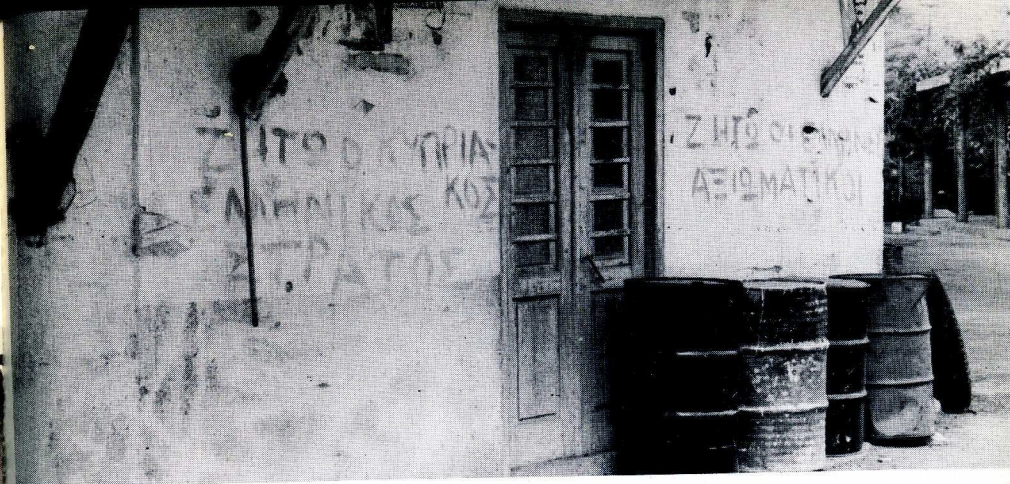 ΖΗΤΩ Ο ΚΥΠΡΙΑ-
ΚΟΣ
ΕΛΛΗΝΙΚΟΣ
ΣΤΡΑΤΟΣ
ΖΗΤΩ ΟΙ
ΑΞΙΩΜΑΤΙΚΟΙ